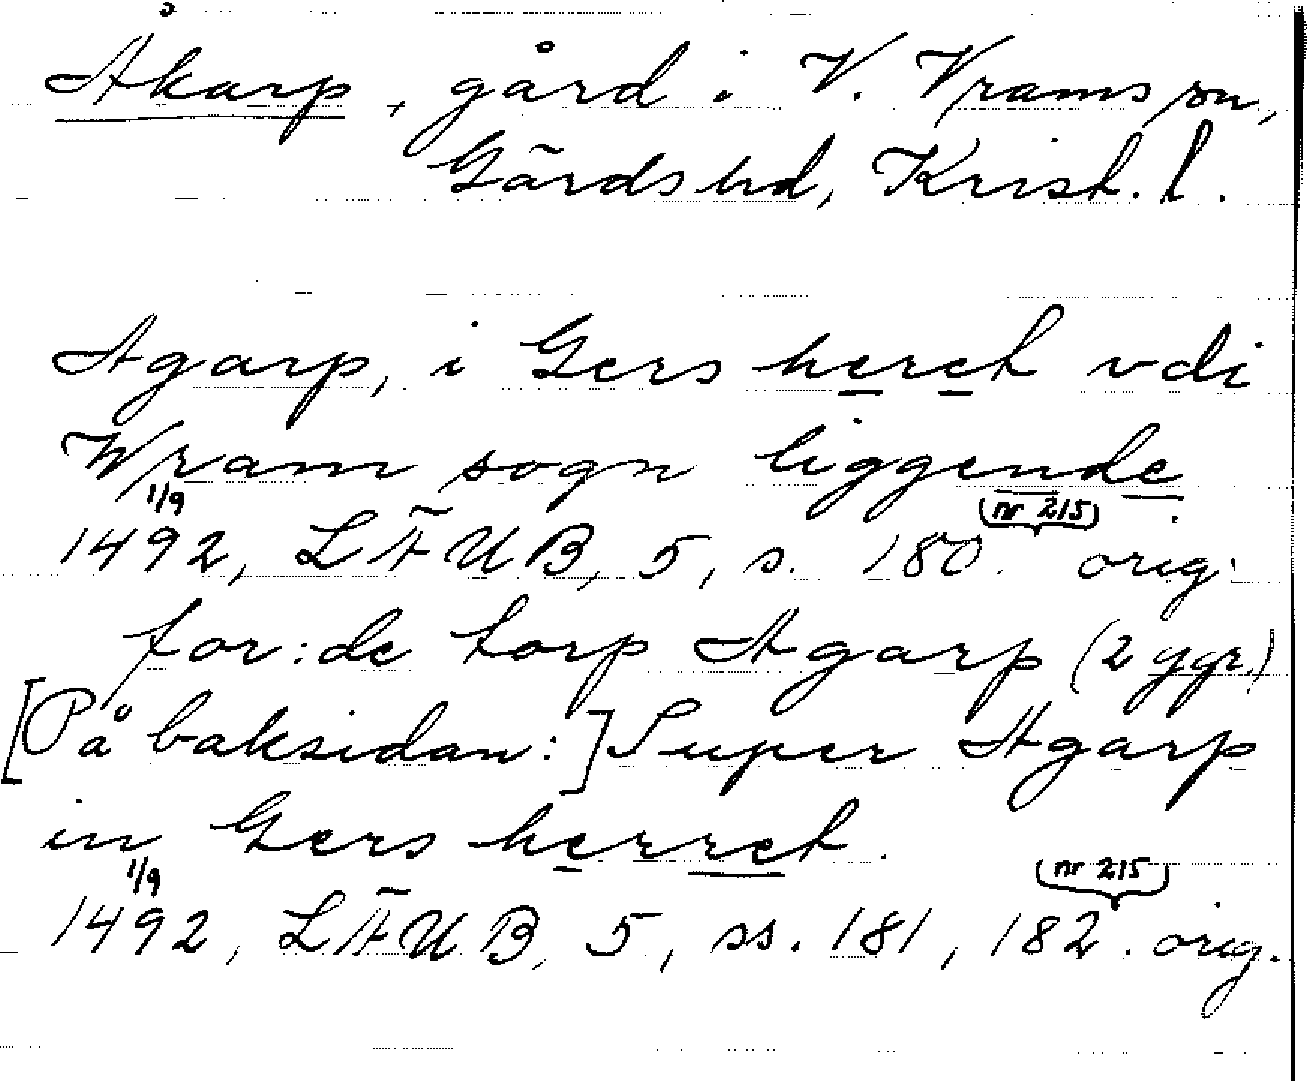 Åkarp, gård i V. Vrams sn,
Gärds hd, Krist. l.
Agarp, i Gers heret vdi
Wram sogn liggende
1/9 nr 215
1492, LÄUB, 5, s. 180. orig.
for:de torp Agarp (2 ggr.)
[På baksidan:] Super Agarp
in Gers herret.
1/9 nr 215
1492, LÄUB, 5, ss. 181, 182. orig.